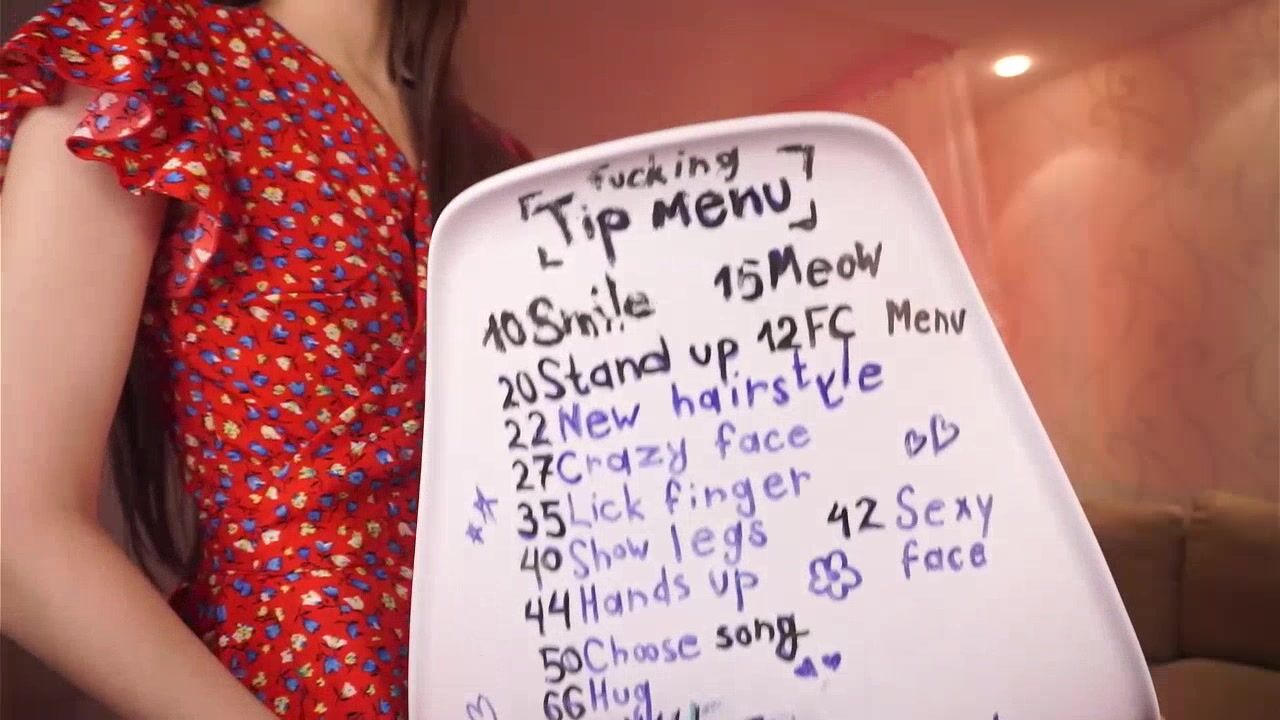 Fucking
Tip Menu
10 Smile 15 Meow
20 Stand up 12 FC Menu
22 New hairstyle
27 Crazy face
35 Lick finger
40 Show legs 42 Sexy face
44 Hands up
50 Choose song
66 Hug